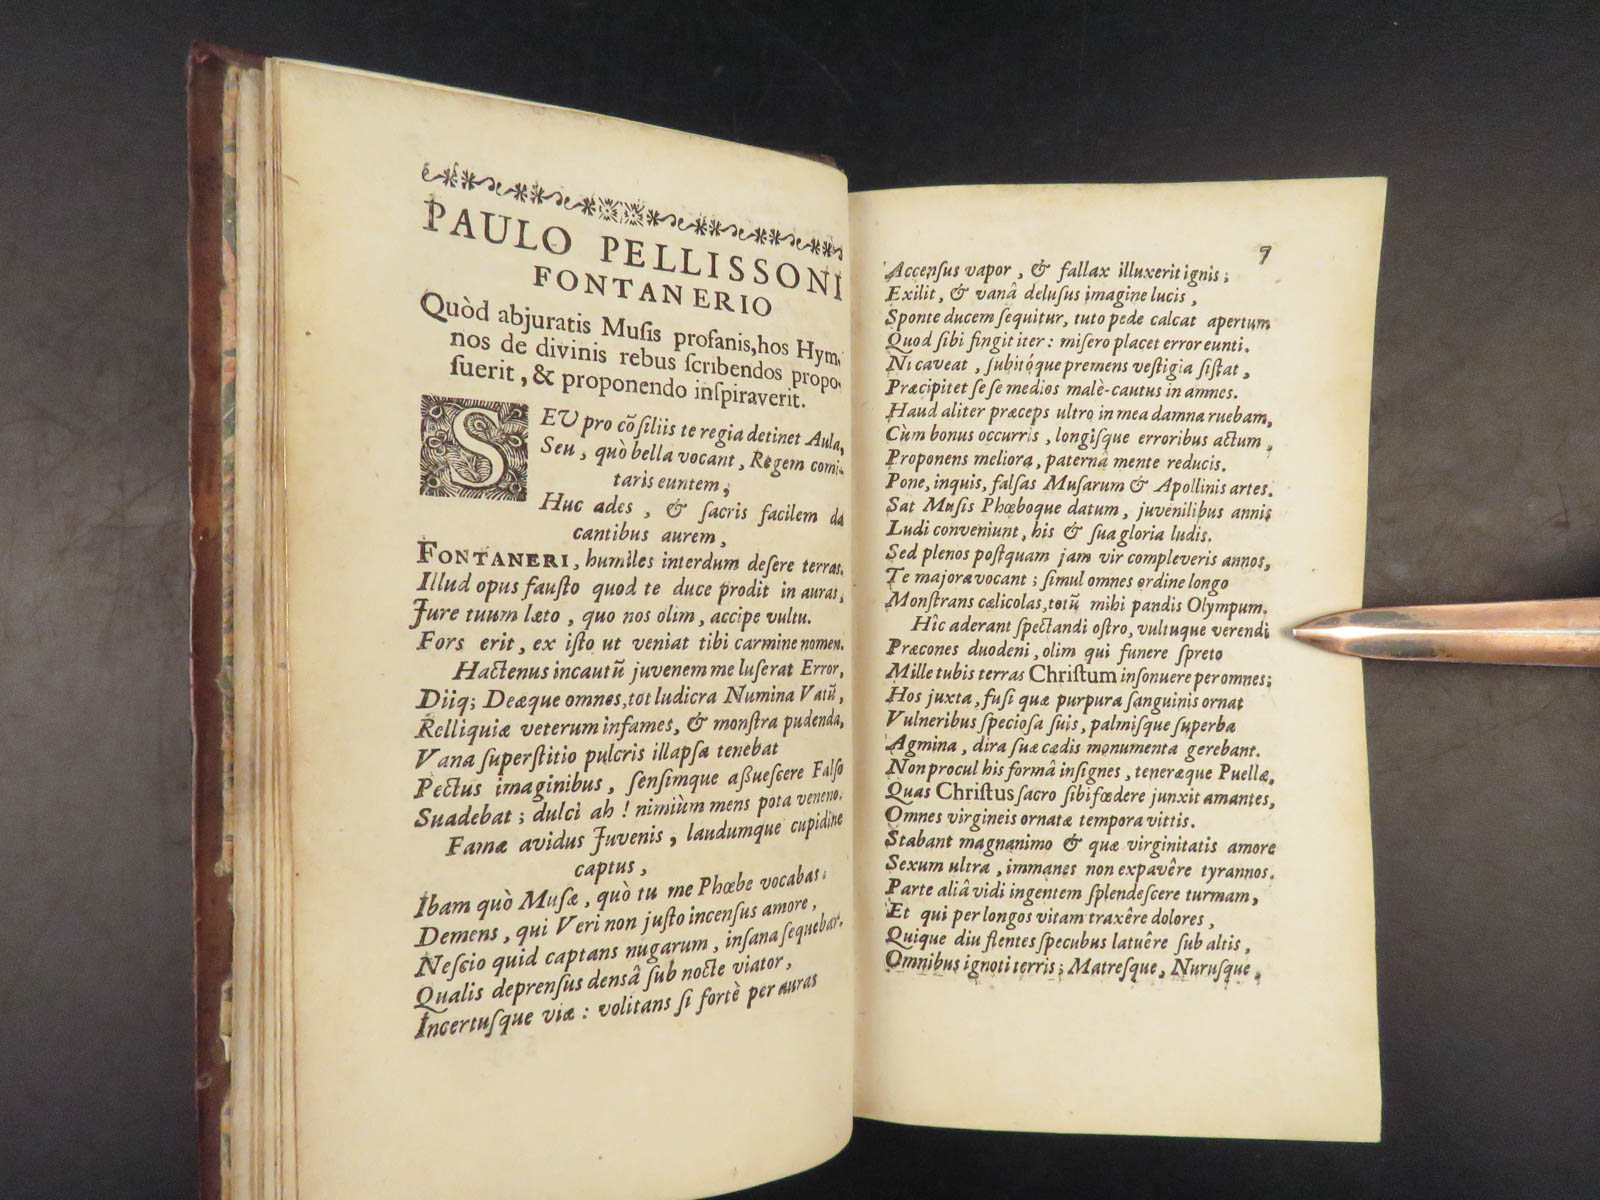 PAULO PELLISSONI
FONTANERIO
Quòd abjuratis Muſis profanis, hos Hym-
nos de divinis rebus ſcribendos propo-
ſuerit, & proponendo inſpiraverit.
SEU pro cõſiliis te regia detinet Aula,
Seu, quò bella vocant, Regem comi-
taris euntem;
Huc ades, & ſacris facilem da
cantibus aurem,
FONTANERI, humiles interdum deſere terras.
Illud opus fauſto quod te duce prodit in auras,
Jure tuum læto, quo nos olim, accipe vultu.
Fors erit, ex iſto ut veniat tibi carmine nomen.
Hactenus incautũ juvenem me luſerat Error,
Diiq; Deæque omnes, tot ludicra Numina Vatũ,
Relliquiæ veterum infames, & monſtra pudenda,
Vana ſuperſtitio pulcris illapſa tenebat
Pectus imaginibus, ſenſimque aßueſcere Falſo
Suadebat; dulci ah! nimiùm mens pota veneno.
Famæ avidus Juvenis, laudumque cupidine
captus,
Ibam quò Muſæ, quò tu me Phœbe vocabas:
Demens, qui Veri non juſto incenſus amore,
Neſcio quid captans nugarum, inſana ſequebar.
Qualis deprenſus densâ ſub nocte viator,
Incertuſque viæ: volitans ſi fortè per auras
9
Accenſus vapor, & fallax illuxerit ignis;
Exilit, & vanâ deluſus imagine lucis,
Sponte ducem ſequitur, tuto pede calcat apertum
Quod ſibi fingit iter: miſero placet error eunti.
Ni caveat, ſubitóque premens veſtigia ſiſtat,
Præcipitet ſe ſe medios malè-cautus in amnes.
Haud aliter præceps ultro in mea damna ruebam,
Cùm bonus occurris, longiſque erroribus actum,
Proponens meliora, paternâ mente reducis.
Pone, inquis, falſas Muſarum & Apollinis artes.
Sat Muſis Phœboque datum, juvenilibus annis
Ludi conveniunt, his & ſua gloria ludis.
Sed plenos poſtquam jam vir compleveris annos,
Te majora vocant; ſimul omnes ordine longo
Monſtrans cælicolas, totũ mihi pandis Olympum.
Hîc aderant ſpectandi oſtro, vultuque verendi
Præcones duodeni, olim qui funere ſpreto
Mille tubis terras Chriſtum inſonuere per omnes;
Hos juxta, fuſi quæ purpura ſanguinis ornat
Vulneribus ſpecioſa ſuis, palmiſque ſuperba
Agmina, dira ſuæ cædis monumenta gerebant.
Non procul his formâ inſignes, teneræque Puellæ,
Quas Chriſtus ſacro ſibi fœdere junxit amantes,
Omnes virgineis ornatæ tempora vittis.
Stabant magnanimo & quæ virginitatis amore
Sexum ultra, immanes non expavêre tyrannos.
Parte aliâ vidi ingentem ſplendeſcere turmam,
Et qui per longos vitam traxêre dolores,
Quique diu flentes ſpecubus latuêre ſub altis,
Omnibus ignoti terris; Matreſque, Nuruſque,